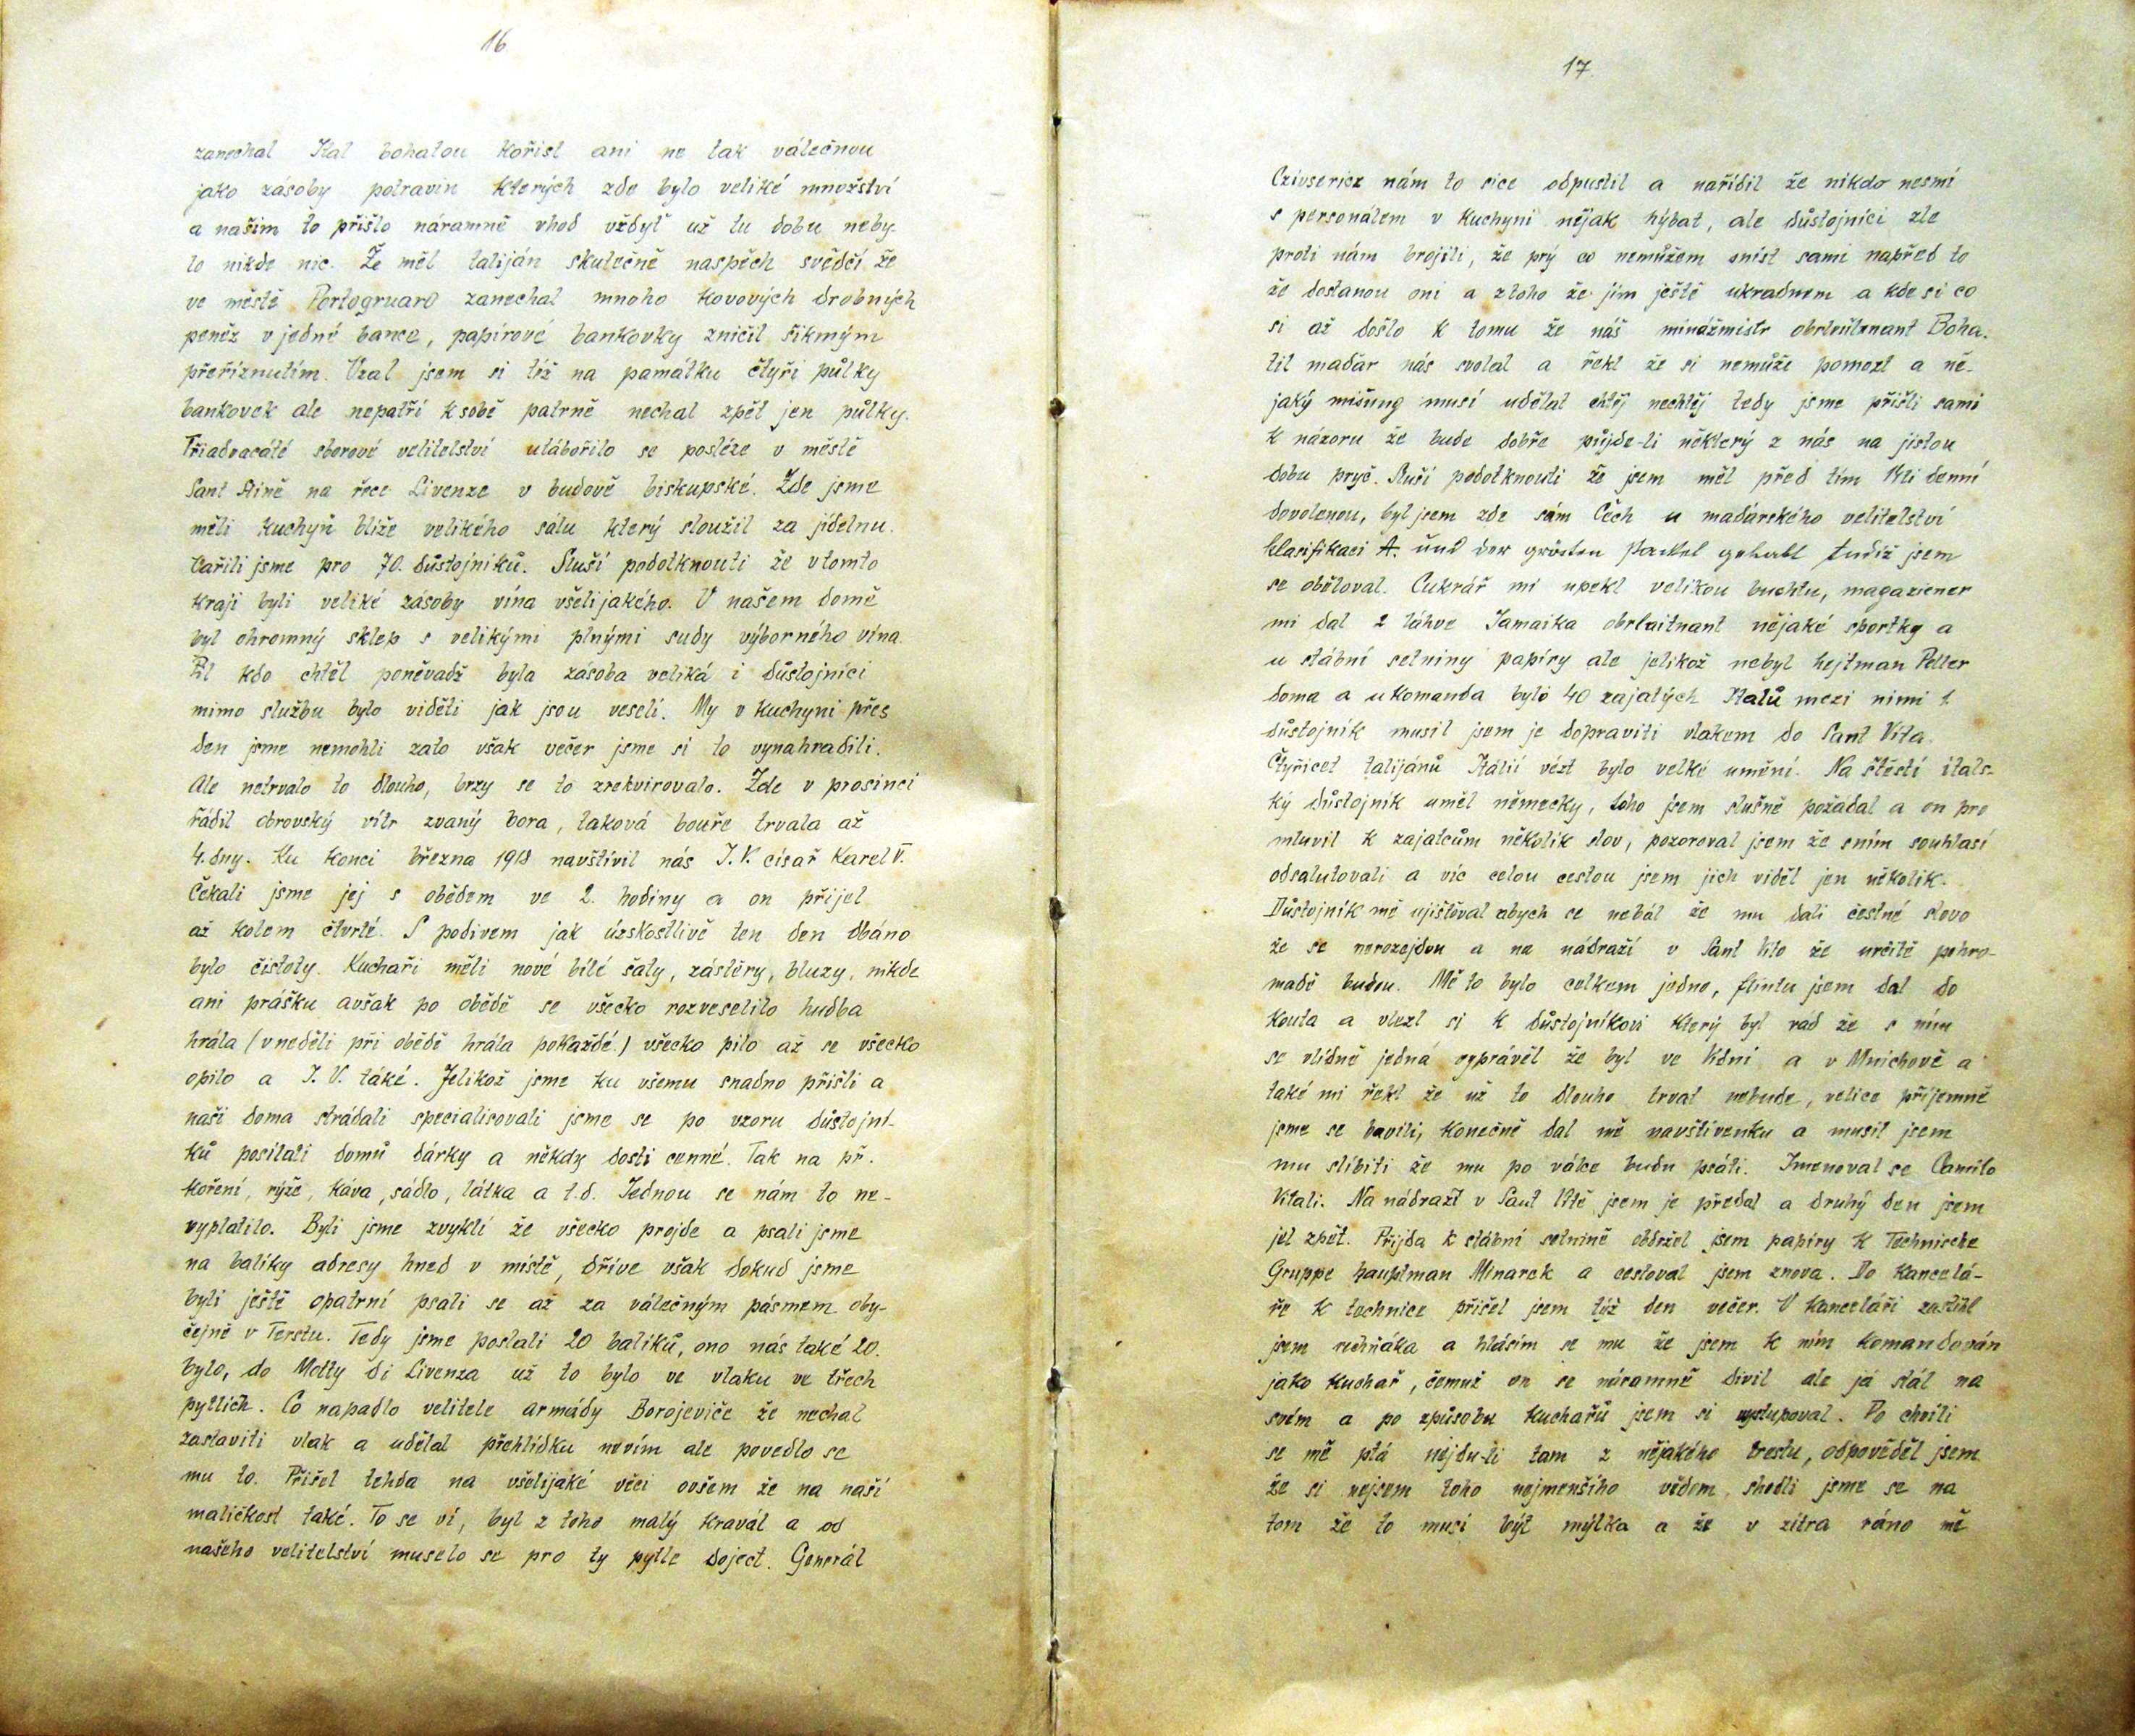 16
zanechal Ital bohatou kořist ani ne tak válečnou
jako zásoby potravin kterých zde bylo veliké množství
a našim to přišlo náramně vhod vždyť už tu dobu neby-
lo nikde nic. Že měl taliján skutečně naspěch svědčí že
ve městě Portogruaro zanechal mnoho kovových drobných
peněz v jedné bance, papírové bankovky zničil šikmým
přeříznutím. Vzal jsem si též na památku čtyři půlky
bankovek ale nepatří k sobě patrně nechal zpět jen půlky.
Třiadvacáté sborové velitelství utábořilo se posléze v městě
Sant Stině na řece Livenze v budově biskupské. Zde jsme
měli kuchyň blíže velikého sálu který sloužil za jídelnu.
Vařili jsme pro 70. důstojníků. Sluší podotknouti že v tomto
kraji byli veliké zásoby vína všelijakého. V našem domě
byl ohromný sklep s velikými plnými sudy výborného vína.
Pil kdo chtěl poněvadž byla zásoba veliká i důstojníci
mimo službu bylo viděti jak jsou veselí. My v kuchyni přes
den jsme nemohli zato však večer jsme si to vynahradili.
Ale netrvalo to dlouho, brzy se to zrekvirovalo. Zde v prosinci
řádil obrovský vítr zvaný bora, taková bouře trvala až
4. dny. Ku konci března 1918 navštívil nás J. V. císař Karel V.
Čekali jsme jej s obědem ve 2. hodiny a on přijel
až kolem čtvrté. S podivem jak úzskostlivě ten den dbáno
bylo čistoty. Kuchaři měli nové bílé šaty, zástěry, bluzy, nikde
ani prášku avšak po obědě se všecko rozveselilo hudba
hrála (v neděli při obědě hrála pokaždé.) všecko pilo až se všecko
opilo a J. V. také. Jelikož jsme ku všemu snadno přišli a
naši doma strádali specialisovali jsme se po vzoru důstojní-
ků posílali domů dárky a někdy dosti cenné. Tak na př.
koření, rýže, káva, sádlo, látka a t.d. Jednou se nám to ne-
vyplatilo. Byli jsme zvyklí že všecko projde a psali jsme
na balíky adresy hned v místě, dříve však dokud jsme
byli ještě opatrní psali se až za válečným pásmem oby-
čejně v Terstu. Tedy jsme poslali 20 balíků, ono nás také 20.
bylo, do Motty di Livenza už to bylo ve vlaku ve třech
pytlích. Co napadlo velitele armády Borojeviče že nechal
zastaviti vlak a udělal přehlídku nevím ale povedlo se
mu to. Přišel tehda na všelijaké věci ovšem že na naší
maličkost také. To se ví, byl z toho malý kravál a od
našeho velitelství muselo se pro ty pytle doject. Generál
17.
Czivsericz nám to sice odpustil a nařídil že nikdo nesmí
s personálem v kuchyni nějak hýbat, ale důstojníci zle
proti nám brojili, že prý co nemůžem sníst sami napřed to
že dostanou oni a z toho že jim ještě ukradnem a kde si co
si až došlo k tomu že náš minážmistr obrleutenant Boha-
til maďar nás svolal a řekl že si nemůže pomozt a ně-
jaký mišung musí udělat chtěj nechtěj tedy jsme přišli sami
k názoru že bude dobře půjde-li některý z nás na jistou
dobu pryč. Sluší podotknouti že jsem měl před tím 14ti denní
dovolenou, byl jsem zde sám Čech u maďarského velitelství
klasifikaci A. und der grösten Packel gehabt tudíž jsem
se obětoval. Cukrář mi upekl velikou buchtu, magaziener
mi dal 2 láhve Jamaika obrlaitnant nějaké sportky a
u stábní setniny papíry ale jelikož nebyl hejtman Peller
doma a u komanda bylo 40 zajatých Italů mezi nimi 1
důstojník musil jsem je dopraviti vlakem do Sant Vita.
Čtyřicet talijánů Itálií vézt bylo velké umění. Na štěstí itals-
ký důstojník uměl německy, toho jsem slušně požádal a on pro
mluvil k zajatcům několik slov, pozoroval jsem že sním souhlasí
odsalutovali a víc celou cestou jsem jich viděl jen několik.
Důstojník mě ujišťoval abych se nebál že mu dali čestné slovo
že se nerozejdou a na nádraží v Sant Vito že určitě pohro-
madě budou. Mě to bylo celkem jedno, flintu jsem dal do
kouta a vlezl si k důstojníkovi který byl rad že s ním
se vlídně jedná vyprávěl že byl ve Vídni a v Mnichově a
také mi řekl že už to dlouho trvat nebude, velice příjemně
jsme se bavili, konečně dal mě navštívenku a musil jsem
mu slíbiti že mu po válce budu psáti. Jmenoval se Camilo
Vitali. Na nádraží v Sant Vitě jsem je předal a druhý den jsem
jel zpět. Přijda k stábní setnině obdržel jsem papíry k Technische
Gruppe hauptman Minarek a cestoval jsem znova. Do kancelá-
ře k technice přišel jsem týž den večer. V kanceláři zastihl
jsem rechňáka a hlásím se mu že jsem k ním komandován
jako kuchař, čemuž on se náramně divil ale já stál na
svém a po způsobu kuchařů jsem si vystupoval. Po chvíli
se mě ptá nejdu-li tam z nějakého trestu, odpověděl jsem
že si nejsem toho nejmenšího vědom, shodli jsme se na
tom že to musí být mýlka a že v zítra ráno mě